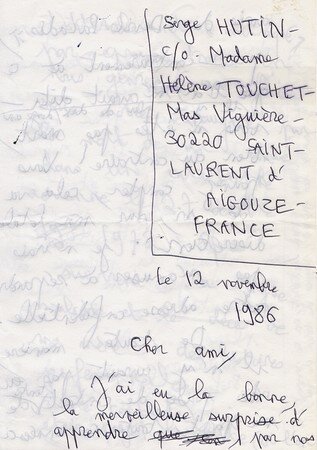 Serge HUTIN -
c/o. Madame
Hélène TOUCHET-
Mas Viguière -
30220 SAINT-
LAURENT d'
AIGOUZE -
FRANCE
Le 12 novembre
1986
Cher ami,
J'ai eu la bonne,
la merveilleuse surprise d'
apprendre par nos